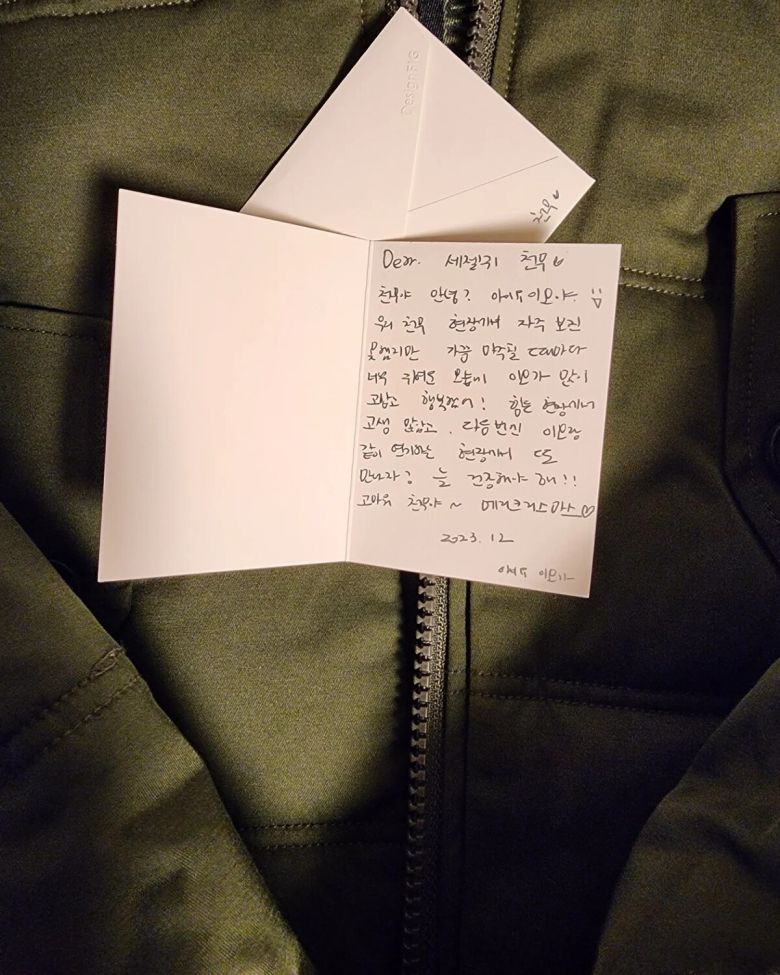 Design FIG
천무♡
Dear. 세젤귀 천무♡
천무야 안녕? 이모야. :)
우리 천무 현장에서 자주 보진
못했지만 가끔 마주칠 때마다
너무 귀여운 모습에 이모가 많이
고맙고 행복했어! 힘든 현장에서
고생 많았고. 다음번엔 이모랑
같이 연기하는 현장에서 또
만나자? 늘 건강해야 해!!
고마워 천무야 ~ 메리크리스마스♡
2023. 12
이모가